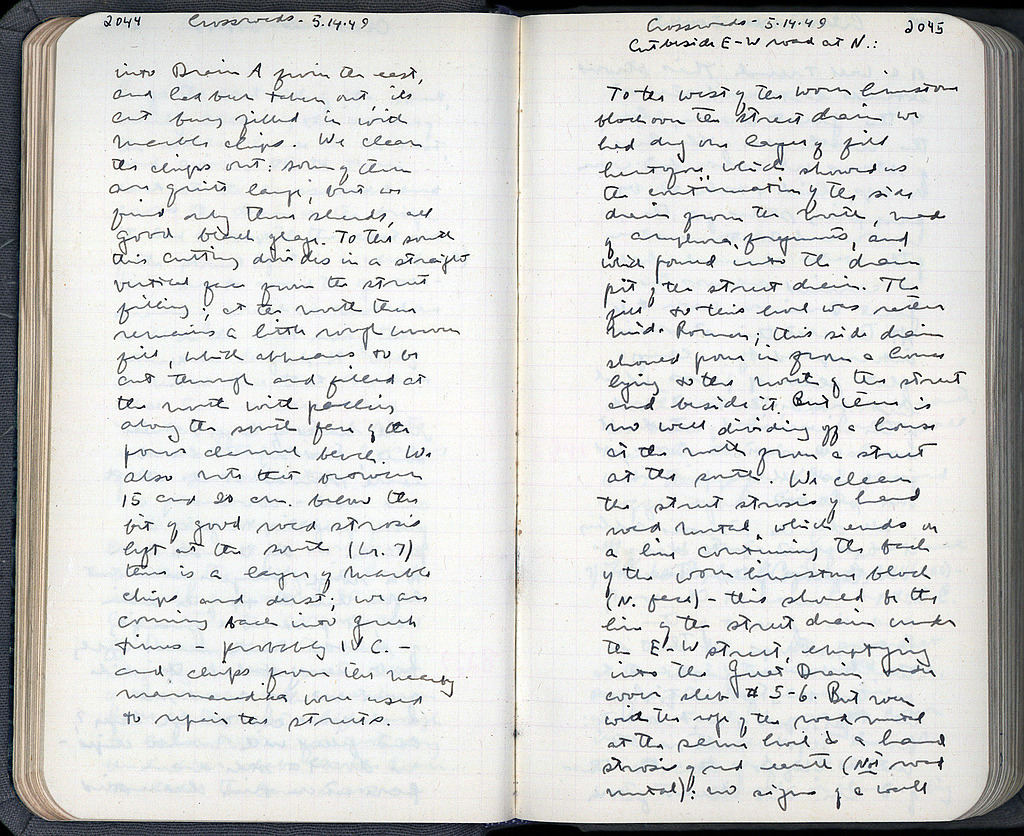 2044 Crossroads - 5.14.49
into Drain A from the east,
and had been taken out, its
cut being filled in with
marble chips. We clean
the chips out: some of them
are quite large, but we
find only three sherds, all
good black glaze. To the south
this cutting divides in a straight
vertical face from the street
filling; at the north there
remains a little rough brown
fill, which appears to be
cut through and filled at
the north with packing
along the south face of the
poros channel bench. We
also note that between
15 and 20 cm. below the
bit of good road strosis
left at the south (Lr. 7)
there is a layer of marble
chips and dust; we are
coming back into Greek
times - probably IV C. -
and chips from the nearby
were used
to repair the streets.
Crossroads - 5.14.49 2045
Cut beside E-W road at N.:
To the west of the worn limestone
block over the street drain we
had dug one layer of fill
, which showed us
the continuation of the side
drain from the north, made
of amphora fragments, and
which poured into the drain
pit of the street drain. The
fill to this level was rather
mid. Roman; this side drain
should pour in from a house
lying to the north of the street
and beside it. But there is
no wall dividing off a house
at the north from a street
at the south. We clean
the street strosis of hard
road metal, which ends on
a line continuing the back
of the worn limestone block
(N. face) - this should be the
line of the street drain under
the E-W street, emptying
into the Great Drain under
cover slab # 5-6. But even
with the top of the road metal
at the same level is a hard
strosis of red earth (Not road
metal): no signs of a wall